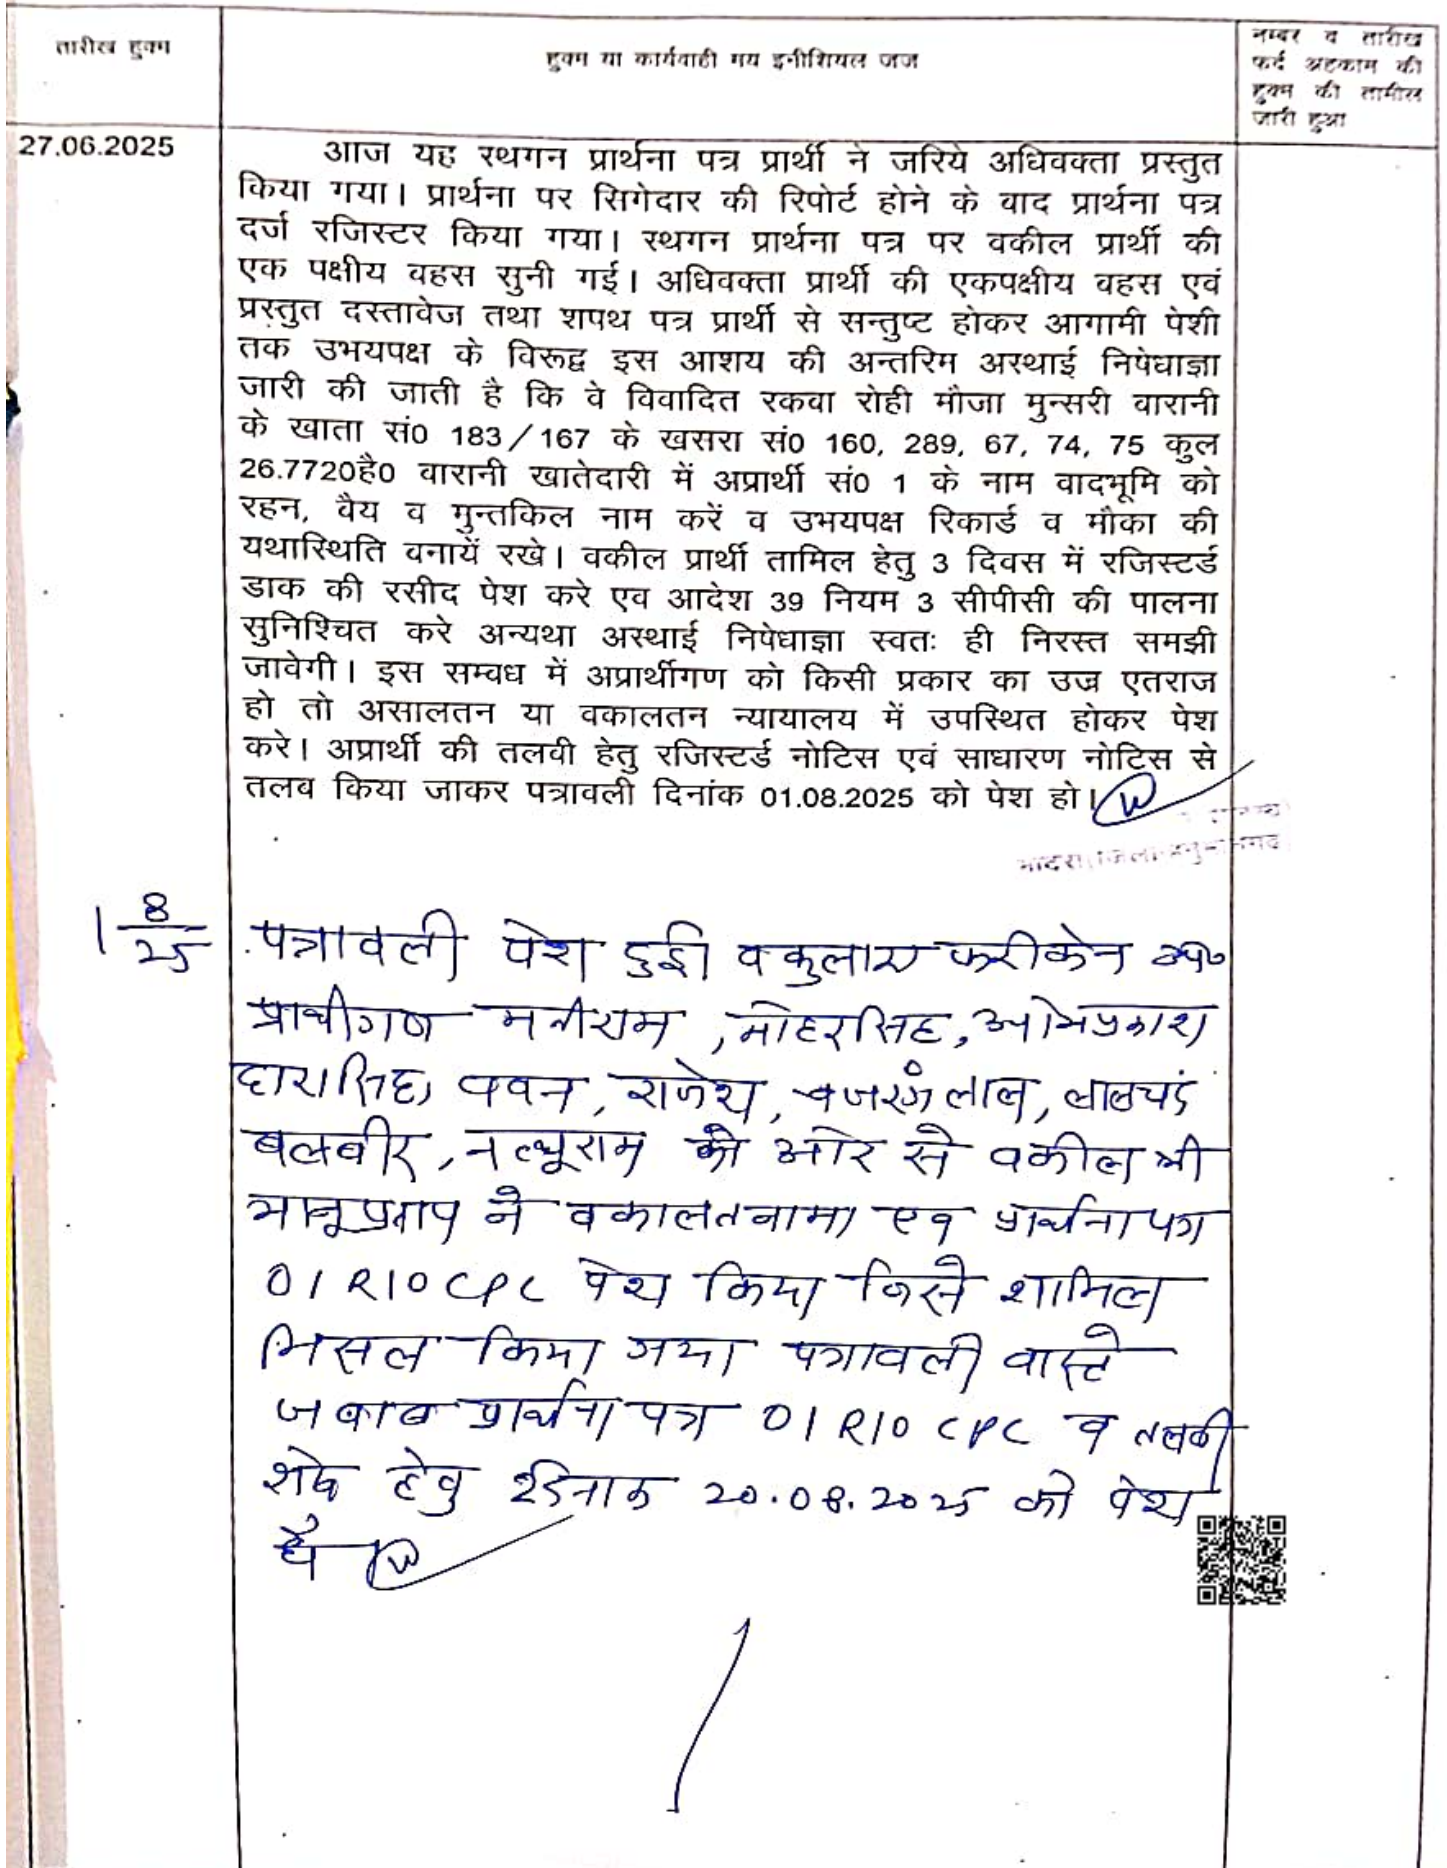 तारीख हुक्म
हुक्म या कार्यवाही मय इनीशियल जज
नम्बर व तारीख
फर्द अहकाम की
हुक्म की तामील
जारी हुआ
27.06.2025
आज यह स्थगन प्रार्थना पत्र प्रार्थी ने जरिये अधिवक्ता प्रस्तुत
किया गया। प्रार्थना पर सिगेदार की रिपोर्ट होने के वाद प्रार्थना पत्र
दर्ज रजिस्टर किया गया। स्थगन प्रार्थना पत्र पर वकील प्रार्थी की
एक पक्षीय वहस सुनी गई। अधिवक्ता प्रार्थी की एकपक्षीय वहस एवं
प्रस्तुत दस्तावेज तथा शपथ पत्र प्रार्थी से सन्तुष्ट होकर आगामी पेशी
तक उभयपक्ष के विरूद्व इस आशय की अन्तरिम अस्थाई निषेधाज्ञा
जारी की जाती है कि वे विवादित रकवा रोही मौजा मुन्सरी वारानी
के खाता सं0 183/167 के खसरा सं0 160, 289, 67, 74, 75 कुल
26.7720है0 वारानी खातेदारी में अप्रार्थी सं0 1 के नाम वादभूमि को
रहन, वैय व मुन्तकिल नाम करें व उभयपक्ष रिकार्ड व मौका की
यथास्थिति वनायें रखे। वकील प्रार्थी तामिल हेतु 3 दिवस में रजिस्टर्ड
डाक की रसीद पेश करे एव आदेश 39 नियम 3 सीपीसी की पालना
सुनिश्चित करे अन्यथा अस्थाई निषेधाज्ञा स्वतः ही निरस्त समझी
जावेगी। इस सम्वध में अप्रार्थीगण को किसी प्रकार का उज्र एतराज
हो तो असालतन या वकालतन न्यायालय में उपस्थित होकर पेश
करे। अप्रार्थी की तलवी हेतु रजिस्टर्ड नोटिस एवं साधारण नोटिस से
तलब किया जाकर पत्रावली दिनांक 01.08.2025 को पेश हो।
भादरा (जिला-हनुमानगढ)
1 8/25
पत्रावली पेश हुई। वकुलाए फरीकेन उप0
प्रार्थीगण मनीराम, मोहरसिंह, ओमप्रकाश
दारासिंह, पवन, राजेश, बजरंगलाल, लालचंद
बलबीर, नत्थूराम की ओर से वकील श्री
भानूप्रताप ने वकालतनामा एव प्रार्थना पत्र
01 R10 CPC पेश किया जिसे शामिल
मिसल किया गया पत्रावली वास्ते
जबाब प्रार्थना पत्र 01 R10 CPC व तलबी
शेष हेतु दिनांक 20.08.2025 को पेश
हो